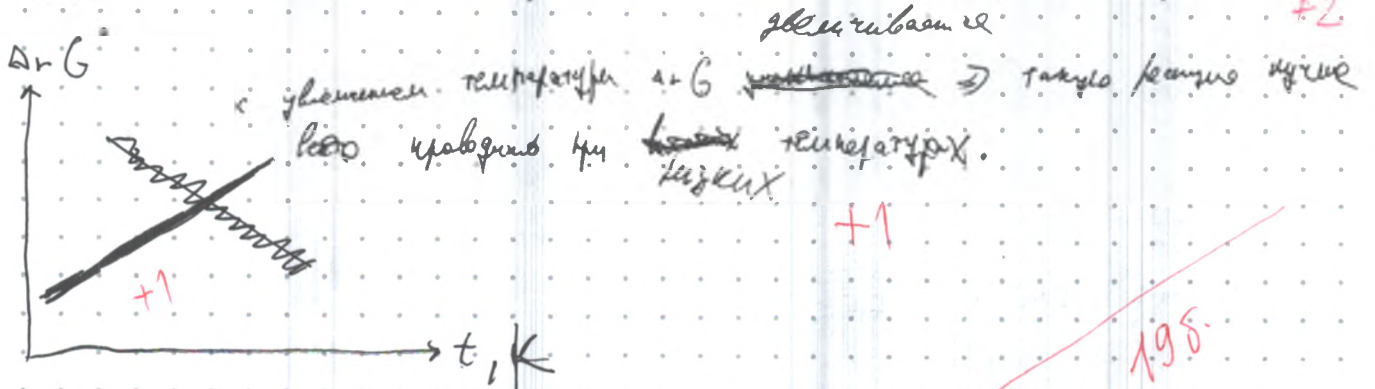 +2
увеличивается
ΔrG
с увеличением температуры ΔrG ⇒ такую реакцию лучше
всего проводить при температурах.
низких
+1
+1
t, K
19б.